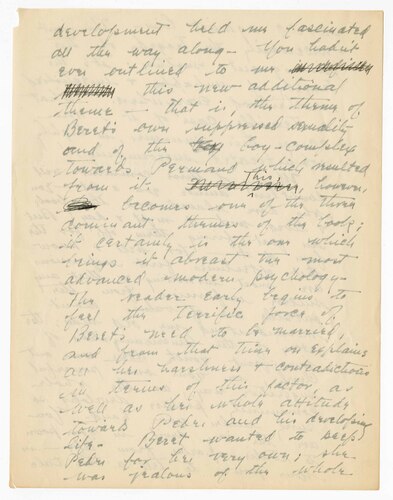 development held me fascinated
all the way along – You hadn't
even outlined to me
this new additional
theme – that is, the theme of
Beret's own suppressed sexuality
and of the boy-complex
towards Permand which resulted
from it. This, however,
becomes one of the three
dominant themes of the book;
it certainly is the one which
brings it abreast the most
advanced modern psychology –
The reader early begins to
feel the terrific force of
Beret's need to be married,
and from that time on explains
all her harshness & contradictions
in terms of this factor, as
well as her whole attitude
towards Peder and his developing
life – Beret wanted to keep
Peder for her very own; she
was jealous of the whole